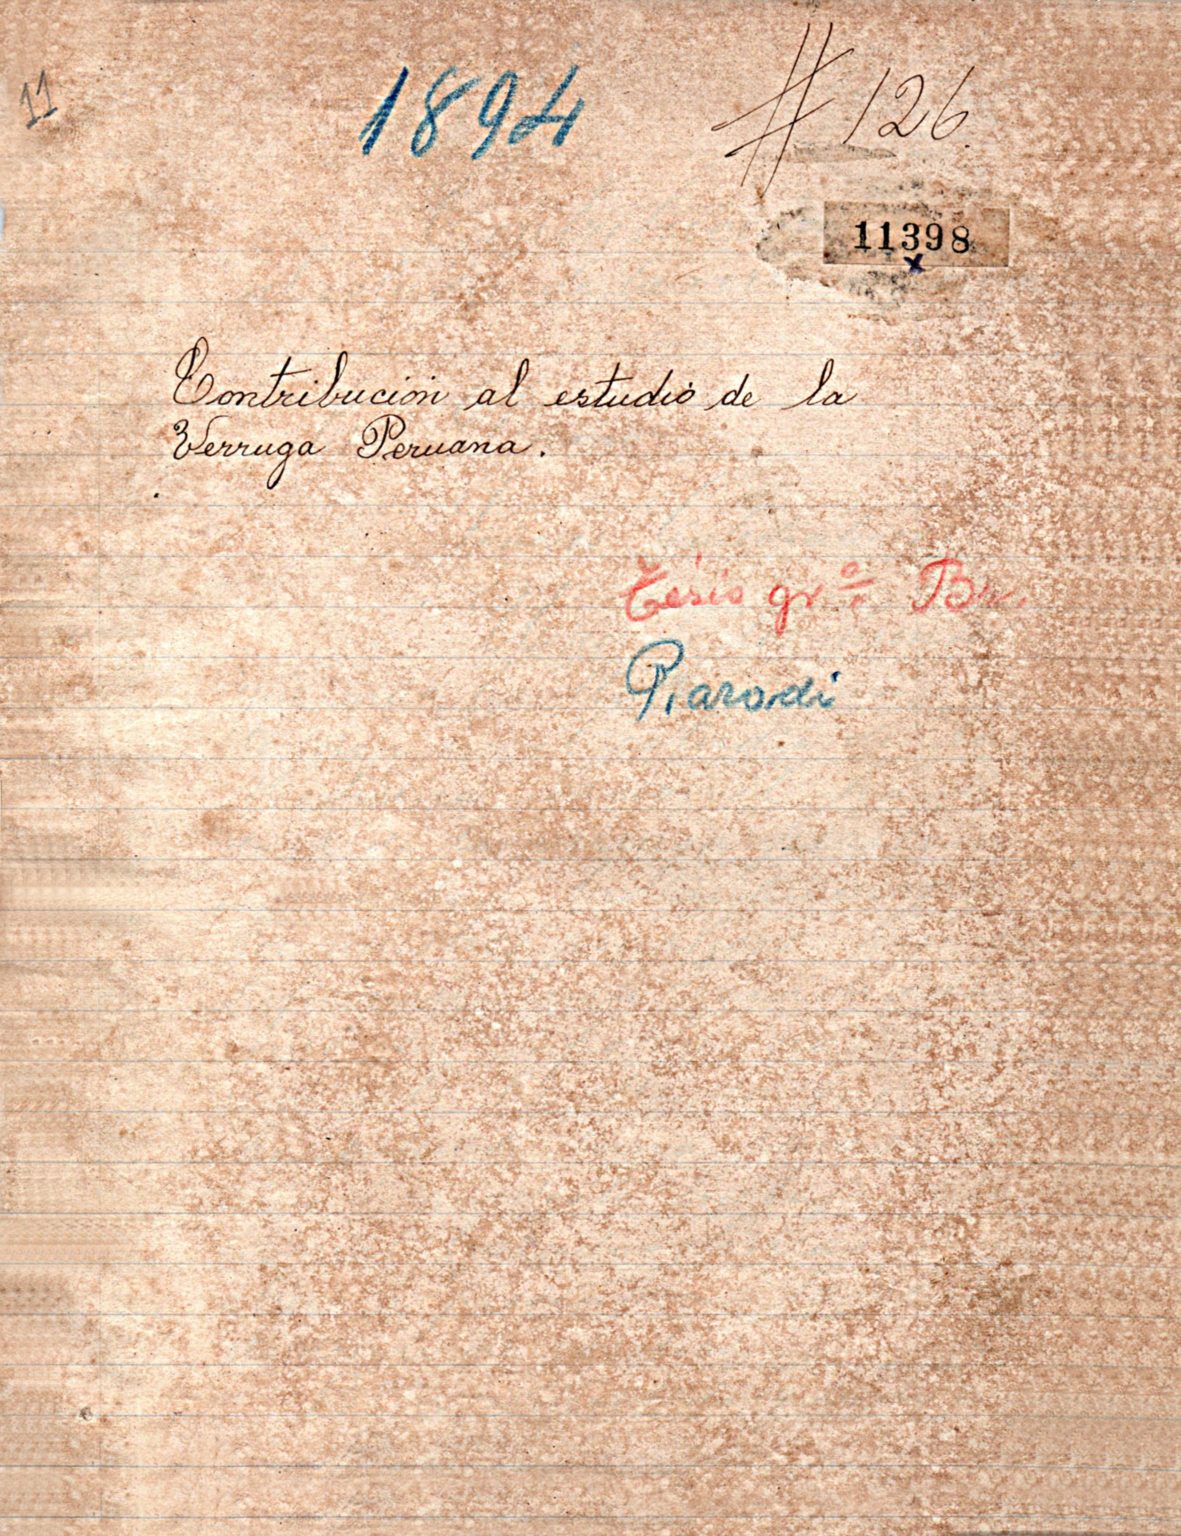 11
1894
# 126
11398
x
Contribución al estudio de la
Verruga Peruana.
Tésis gr.º Br.
Parodi